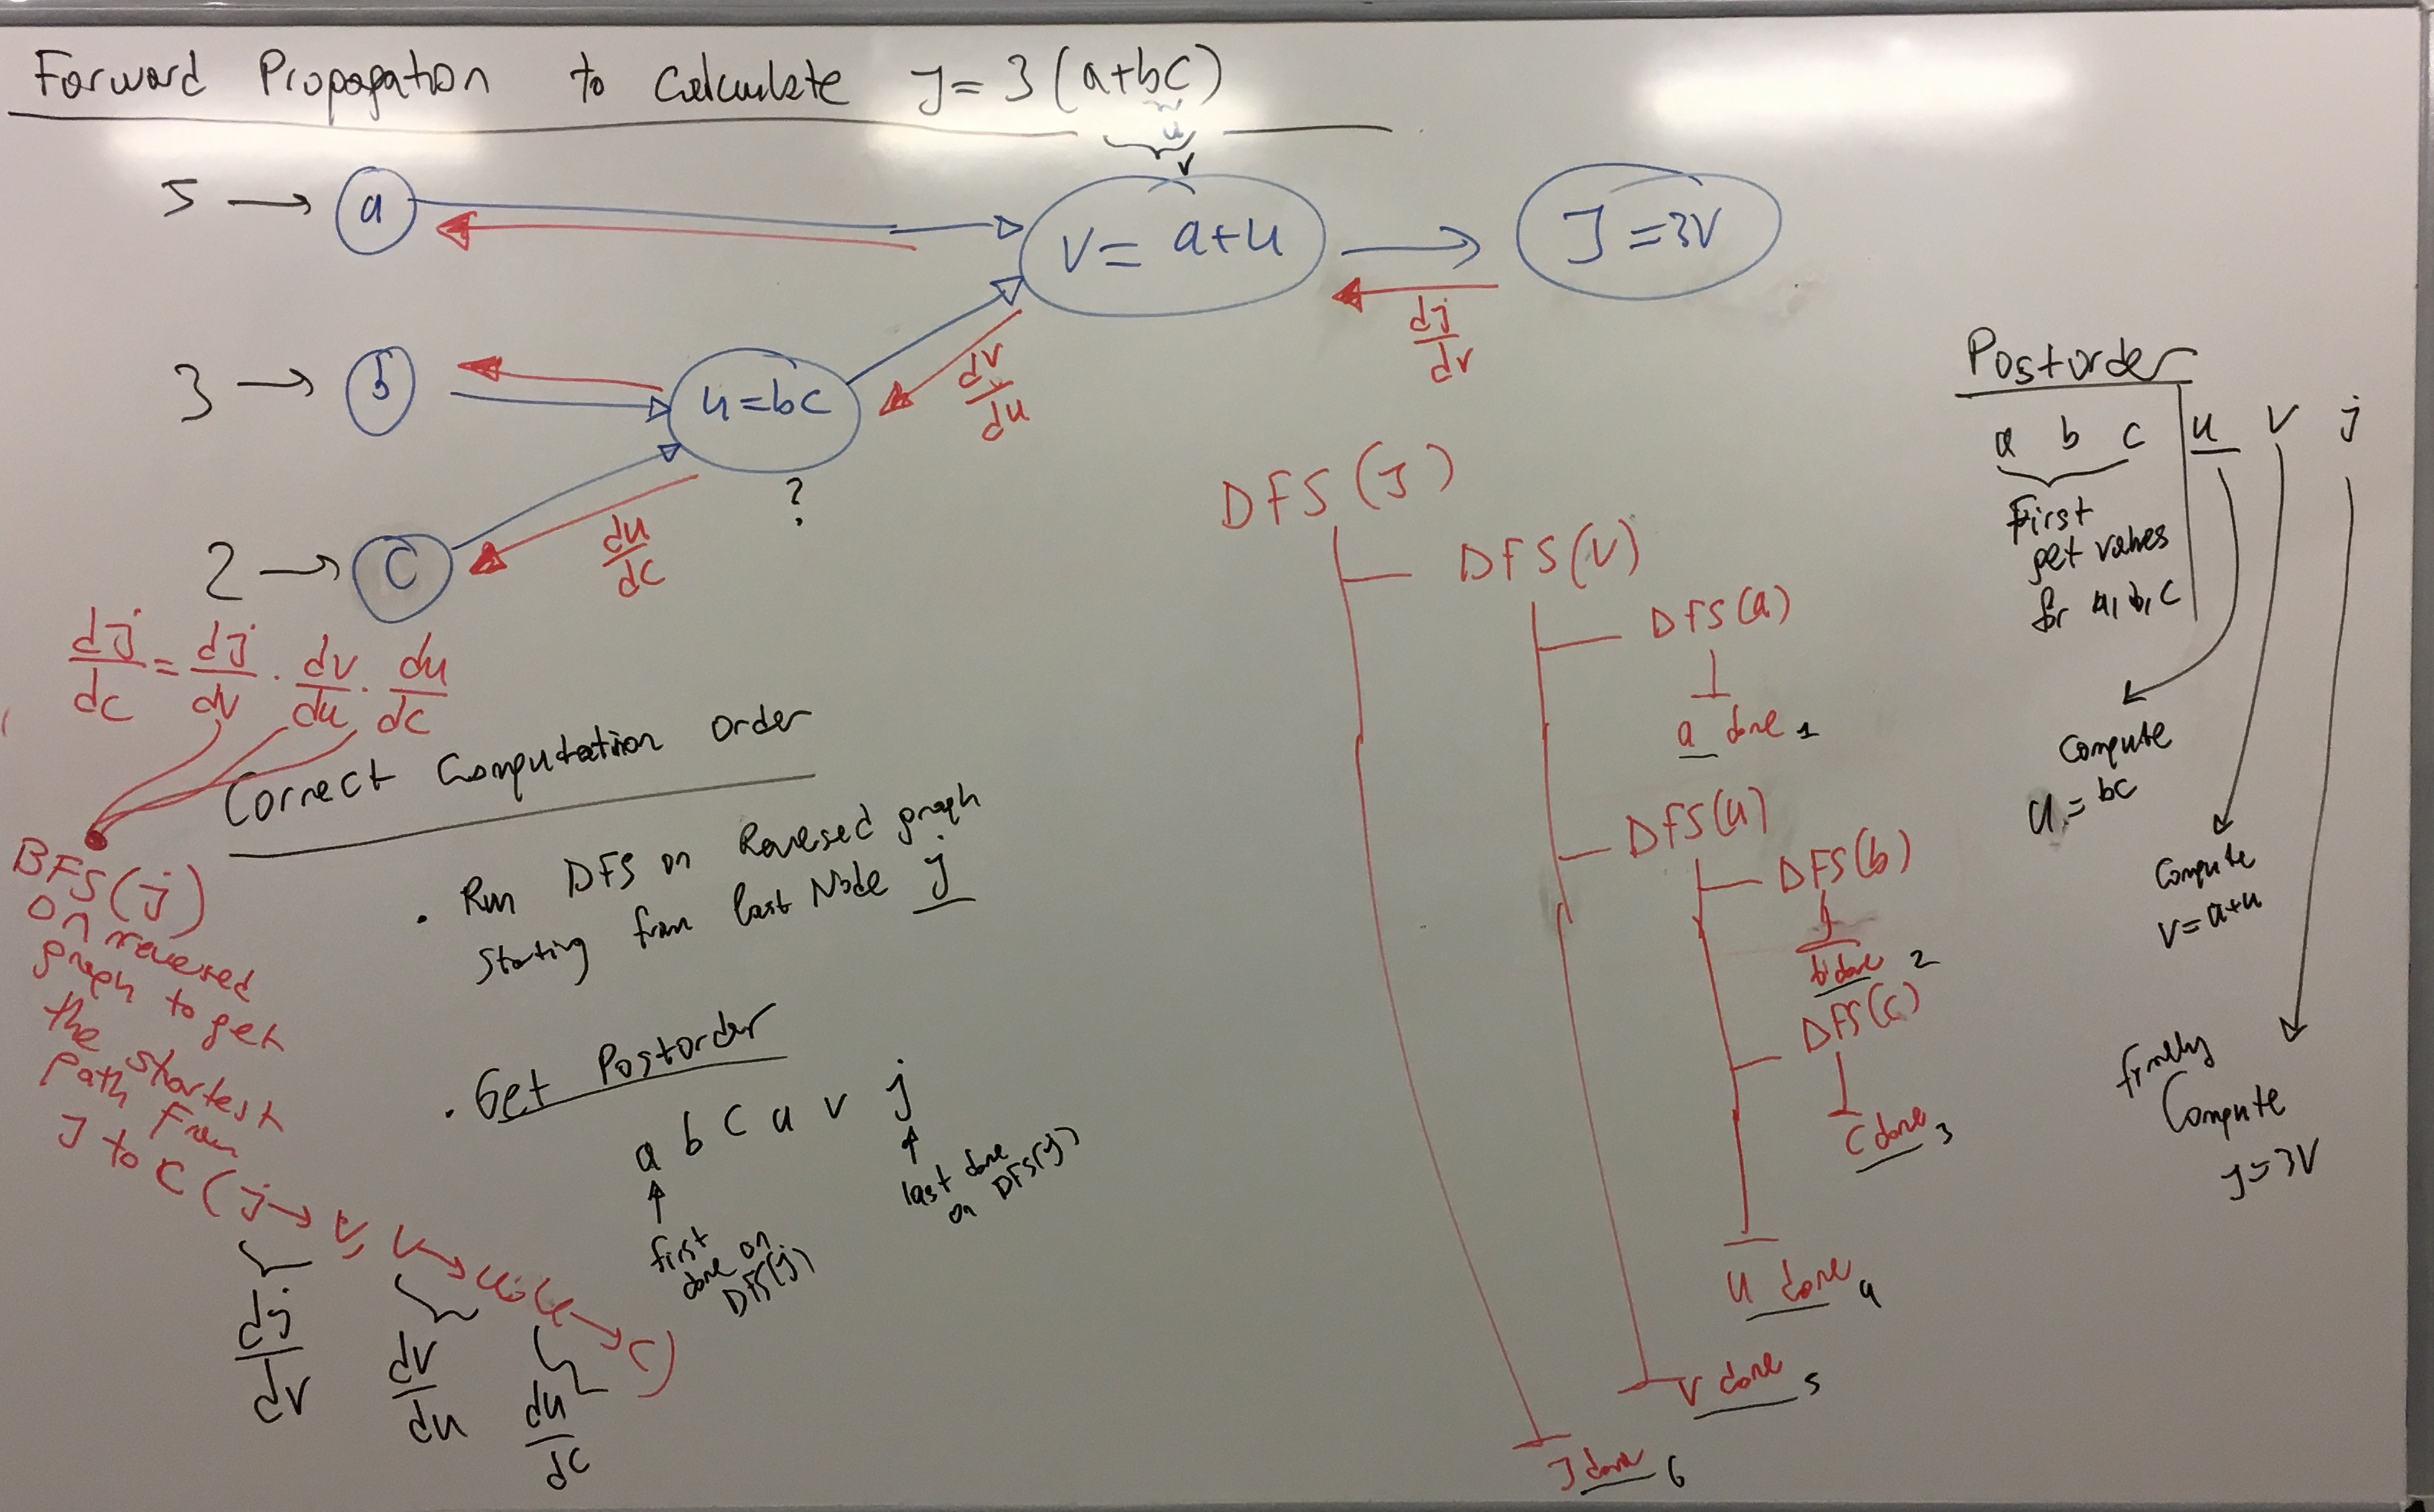 Forward Propagation to Calculate J = 3 (a+bc)
u
v
5 → a
v = a+u
J = 3v
3 → b
u = bc
?
2 → c
dj/dv
dv/du
du/dc
dJ/dc = dj/dv · dv/du · du/dc
BFS(j)
on reversed
graph to get
the shortest
path from
J to C (j → v, v → u, u → c)
dj/dv
dv/du
du/dc
Correct Computation Order
· Run DFS on Reversed graph
starting from last Node j
· Get Postorder
a b c u v j
first
done on
DFS(j)
last done
on DFS(j)
DFS(J)
DFS(V)
DFS(a)
a done 1
DFS(u)
DFS(b)
b done 2
DFS(c)
C done 3
u done 4
v done 5
J done 6
Postorder
a b c u v j
First
get values
for a, b, c
Compute
u = bc
Compute
v = a+u
finally
Compute
J = 3V